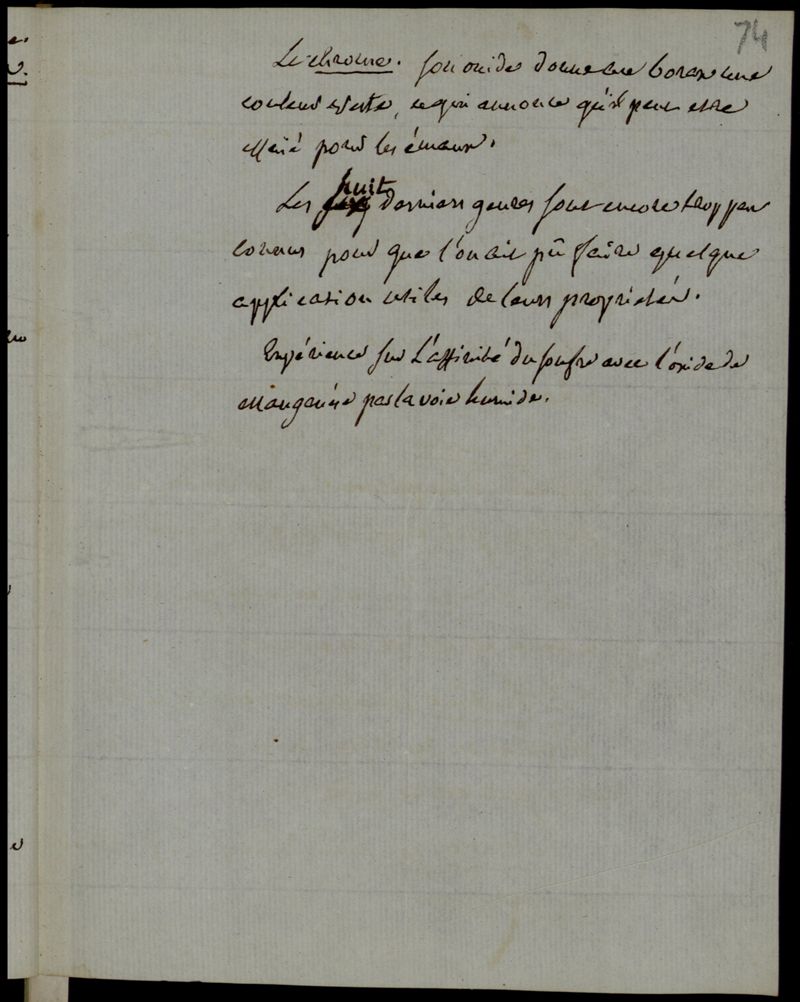 74
Le chrome. son oxide donne au borax une
couleur verte, ce qui annonce qu'il peut etre
essaié pour les émaux.
Les huit derniers genres sont encore trop peu
connus pour que l'on ait pû faire quelque
application utiles de leurs propriétés.
Expérience sur L'affinité du soufre avec l'oxide de
Manganèse par la voie humide.